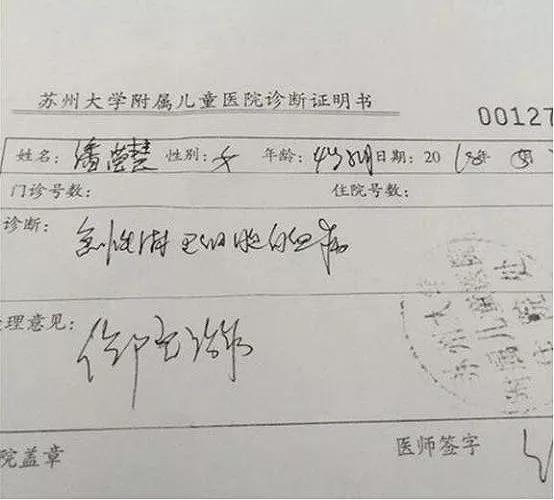 苏州大学附属儿童医院诊断证明书
00127
姓名: 潘莹慧 性别: 女 年龄: 4岁 月 日期: 20 18年 月
门诊号数: 住院号数:
诊断: 急性淋巴细胞白血病
理意见: 住院治疗
苏州大学
院盖章 医师签字